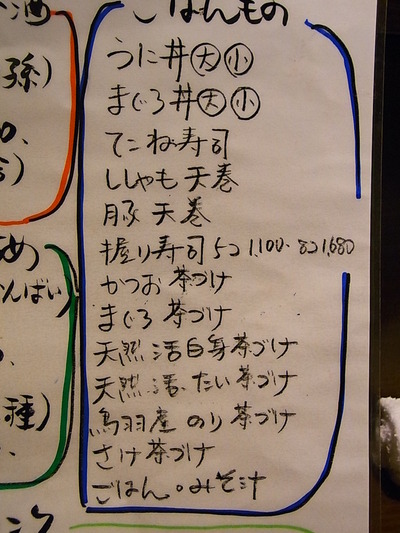 酒
ごはんもの
孫)
うに丼 大 小
まぐろ丼 大 小
てこね寿司
ししゃも天巻
豚天巻
握り寿司 5コ 1,100. 8コ 1,680
かつお茶づけ
まぐろ茶づけ
天然活白身茶づけ
天然活たい茶づけ
鳥羽産のり茶づけ
種)
さけ茶づけ
ごはん。みそ汁